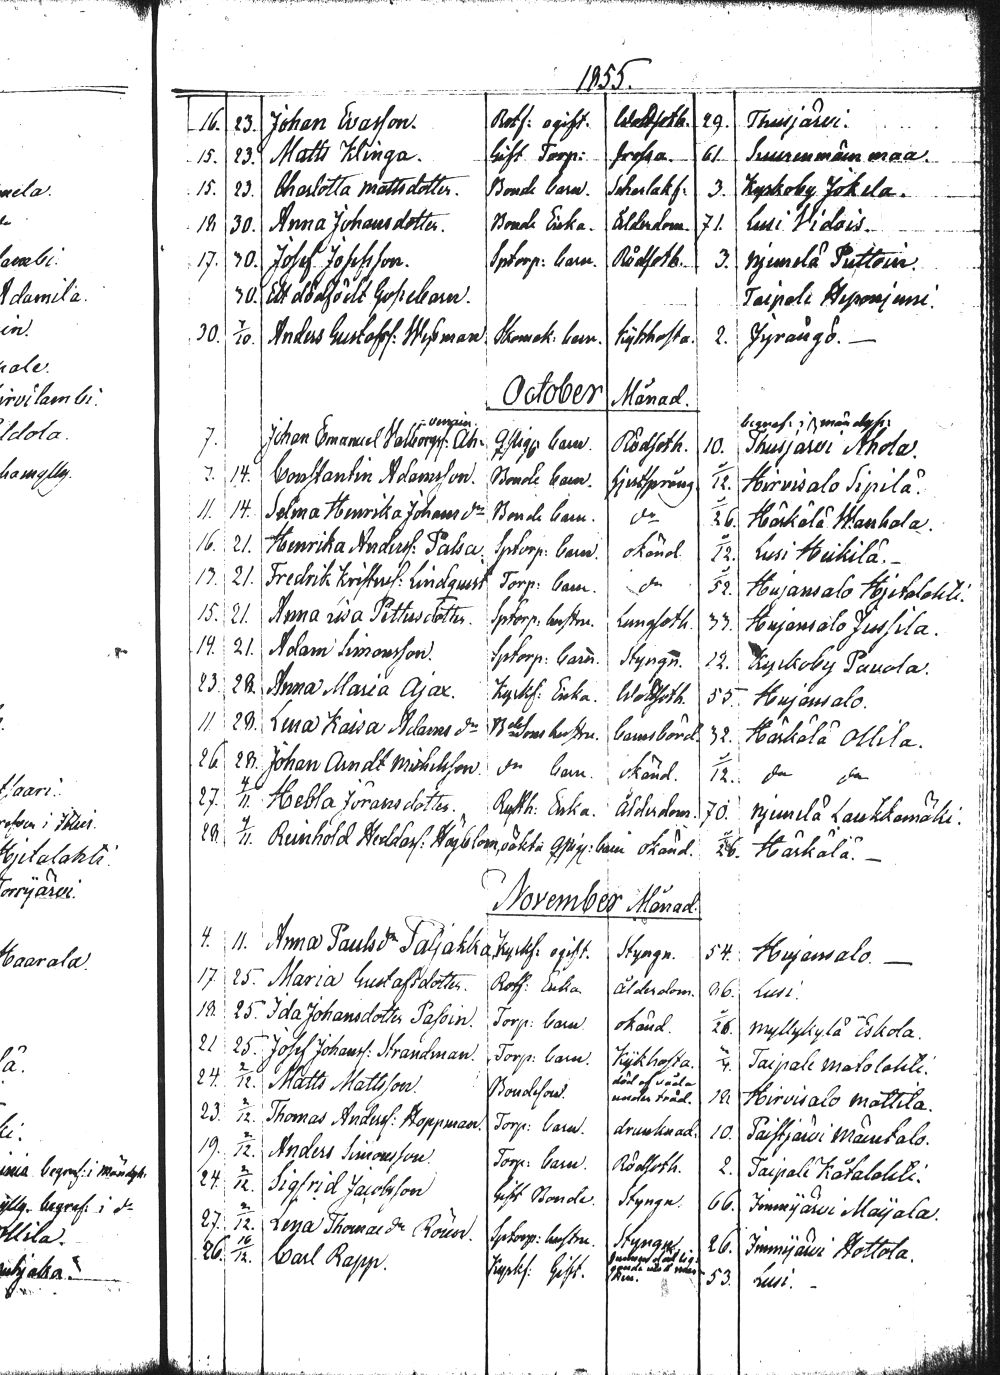 mela.
lambi.
Adamila.
in.
pale.
Hirvilambi.
Eldola.
1855.
16. 23. Johan Evasson. Rotf: ogift. Wattsoth. 29. Thusjärvi.
15. 23. Matts Klinga. Gift Torp: frossa. 61. Suurenmäen maa.
15. 23. Charlotta Mattsdotter. Bonde barn. Scharlakf: 3. Kyrkoby Jokela.
18 30. Anna Johansdotter. Bonde Enka. Ålderdom. 71. Lusi
17. 30. Josef Josefsson. Sptorp: barn. Rödsoth. 3. Njemelä Puttoin.
30. Ett dödfödt Gossebarn. Taipale
30. 7/10. Anders Gustafsf: Wessman. barn. Kykhosta. 2. Jyrängö. —
October Månad.
begraf: i Mändyh:
7. Johan Emanuel barn. Rödsoth. 10. Thusjärvi Ahola.
7. 14. Constantin Adamsson. Bonde barn. 5/12. Hirvisalo Sipilä.
11. 14. Selma Henrika Johans dr Bonde barn. do 5/26. Härkälä Wanhala.
16. 21. Henrika Andersf: Palsa. Sptorp: barn. okänd 5/12. Lusi Heikilä. –
13. 21. Fredrik Kristersf: Lindquist Torp: barn. do 5/52. Hujansalo Hjetalahti.
15. 21. Anna Lisa Pettersdotter. Sptorp: hustru. Lungsoth. 33. Hujansalo Jussila.
19. 21. Adam Simonsson. Sptorp: barn. Styngn. 12. Kyrkoby Pavola.
23 28. Anna Maria Ajax. Kyrkf: Enka. Wattsoth. 55 Hujansalo.
11 28. Lena Kaisa Adams dr hustru. barnsbörd. 32. Härkälä Ollila.
26. 28. Johan Arndt Michelsson do barn. okänd. 5/12. do do
27. 4/11. Hebla Göransdotter. Enka. Ålderdom. 70. Njemelä Laukkamäki.
28. 4/11. Reinhold barn okänd. 5/26. Härkälä. —
November Månad.
4. 11. Anna Pauls dr Taljakka Kyrkf: ogift. Styngn. 54. Hujansalo —
17. 25. Maria Gustafsdotter. Rotf: Enka Ålderdom. 86. Lusi.
18. 25. Ida Johansdotter Pasoin. Torp: barn okänd. 5/26. Myllykylä Eskola.
21 25. Josef Johansf: Strandman. Torp: barn. Kykhosta. Taipale Matolahti.
24. 2/12. Matts Mattsson. Bondeson. död af våda under träd. 18. Hirvisalo Mattila.
23. 2/12. Thomas Andersf: Hoppman. Torp: barn. drunknad. 10. Paistjärvi Mäntsalo.
19. 2/12. Anders Simonsson Torp: barn. Rödsoth. 2. Taipale Katalahti.
24. 2/12. Sigfrid Jacobsson Gift Bonde. Styngn. 66. Immijärvi Maijala.
27. 2/12. Lena Thomae dr Röien. Sptorp: hustru. Styngn. 26. Immijärvi Hottola.
26. 16/12. Carl Rapp. Kyrkf: Gift. 53. Lusi. –
Hjetalahti.
Torrjärvi.
Haarala.
begraf: i Mändyh:
begraf: i do
Ollila.